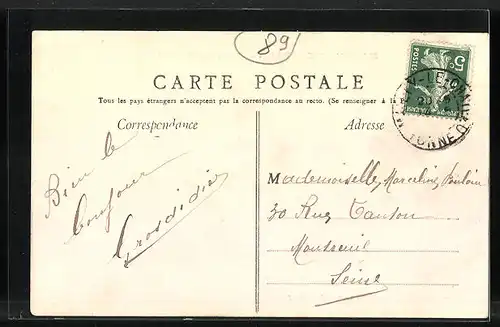 89
CARTE POSTALE
Tous les pays étrangers n'acceptent pas la correspondance au recto. (Se renseigner à la
Correspondance
Adresse
5
POSTES
YONNE
Bien le
bonjour
Grosdidier
Mademoiselle, Marceline
30 Rue Danton
Montreuil
Seine